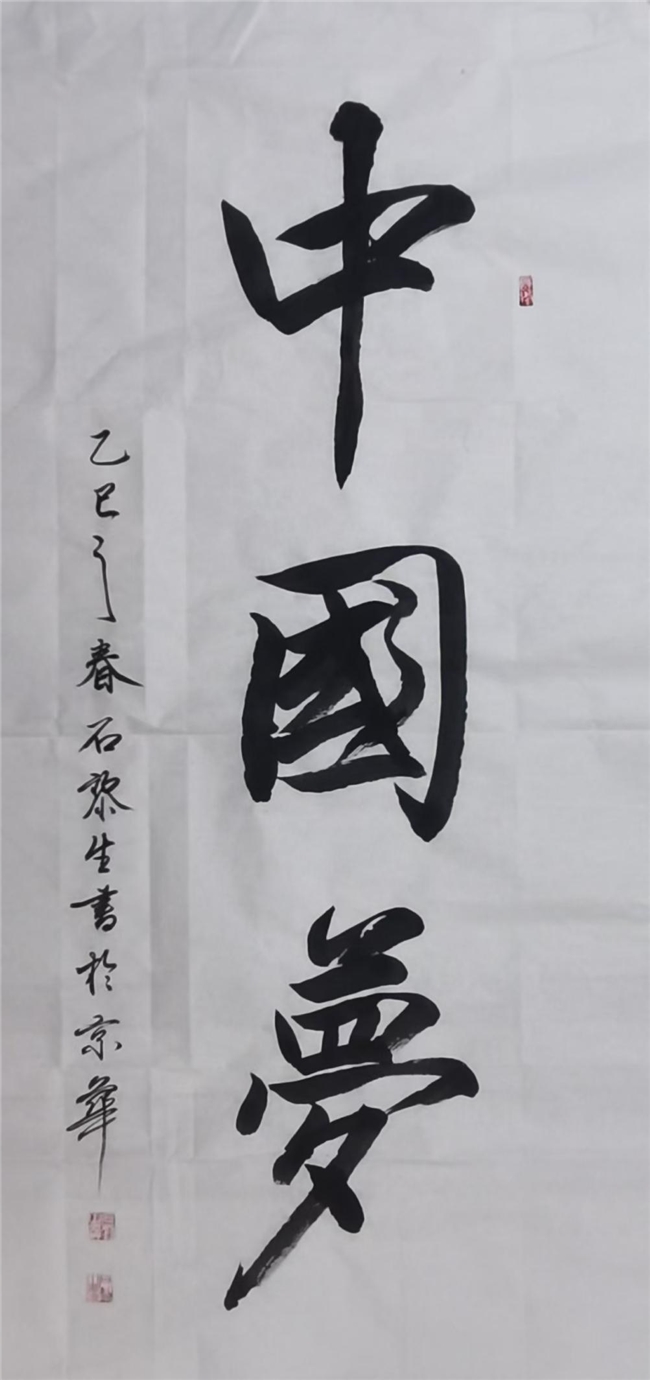 中國夢
乙巳之春石黎生書於京華